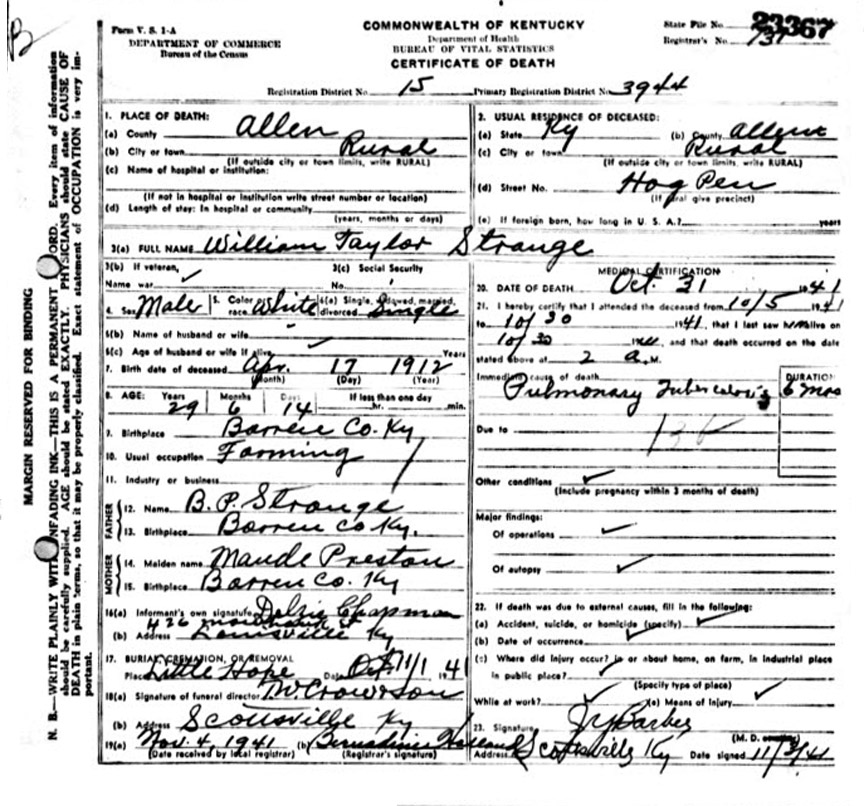 B
Form V. S. 1-A
DEPARTMENT OF COMMERCE
Bureau of the Census
COMMONWEALTH OF KENTUCKY
Department of Health
BUREAU OF VITAL STATISTICS
CERTIFICATE OF DEATH
State File No. 23367
Registrar's No. 137
Registration District No. 15 Primary Registration District No. 3944
MARGIN RESERVED FOR BINDING
N. B.—WRITE PLAINLY WITH UNFADING INK—THIS IS A PERMANENT RECORD. Every item of information
should be carefully supplied. AGE should be stated EXACTLY. PHYSICIANS should state CAUSE OF
DEATH in plain terms, so that it may be properly classified. Exact statement of OCCUPATION is very im-
portant.
1. PLACE OF DEATH:
(a) County Allen
(b) City or town Rural
(If outside city or town limits, write RURAL)
(c) Name of hospital or institution:
(If not in hospital or institution write street number or location)
(d) Length of stay: In hospital or community
(years, months or days)
2. USUAL RESIDENCE OF DECEASED:
(a) State Ky (b) County Allen
(c) City or town Rural
(If outside city or town limits, write RURAL)
(d) Street No. Hog Pen
(If rural give precinct)
(e) If foreign born, how long in U. S. A.? years
3(a) FULL NAME William Taylor Strange
3(b) If veteran, 3(c) Social Security
Name war No.
4. Sex Male 5. Color or race White 6(a) Single, widowed, married, divorced Single
6(b) Name of husband or wife
6(c) Age of husband or wife if alive Years
7. Birth date of deceased Apr. 17 1912
(Month) (Day) (Year)
8. AGE: Years Months Days If less than one day
29 6 14 hr. min.
9. Birthplace Barren Co. Ky
10. Usual occupation Farming
11. Industry or business
FATHER
12. Name B. P. Strange
13. Birthplace Barren Co Ky.
MOTHER
14. Maiden name Maude Preston
15. Birthplace Barren Co. Ky
16(a) Informant's own signature Delsie Chapman
426
(b) Address Louisville Ky
17. BURIAL, CREMATION, OR REMOVAL
Place Little Hope Date Oct 11/1 1941
18(a) Signature of funeral director T. W. Crowson
(b) Address Scottsville Ky
19(a) Nov. 4, 1941 (b) Bernadine Holland
(Date received by local registrar) (Registrar's signature)
MEDICAL CERTIFICATION
20. DATE OF DEATH Oct. 31 1941
21. I hereby certify that I attended the deceased from 10/5 1941
to 10/30 1941, that I last saw him alive on
10/30 1941, and that death occurred on the date
stated above at 2 A. M.
Immediate cause of death DURATION
Pulmonary Tuberculosis 6 mos
Due to
Other conditions
(Include pregnancy within 3 months of death)
Major findings:
Of operations
Of autopsy
22. If death was due to external causes, fill in the following:
(a) Accident, suicide, or homicide (specify)
(b) Date of occurrence
(c) Where did injury occur? in or about home, on farm, in industrial place
in public place?
(Specify type of place)
While at work? (e) Means of Injury
23. Signature
(M. D.
Address Scottsville Ky Date signed 11/3/41